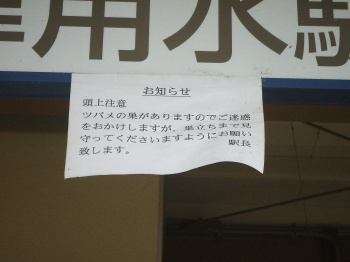 用水駅
お知らせ
頭上注意
ツバメの巣がありますのでご迷惑
をおかけしますが、巣立ちまで見
守ってくださいますようにお願い
致します。
駅長